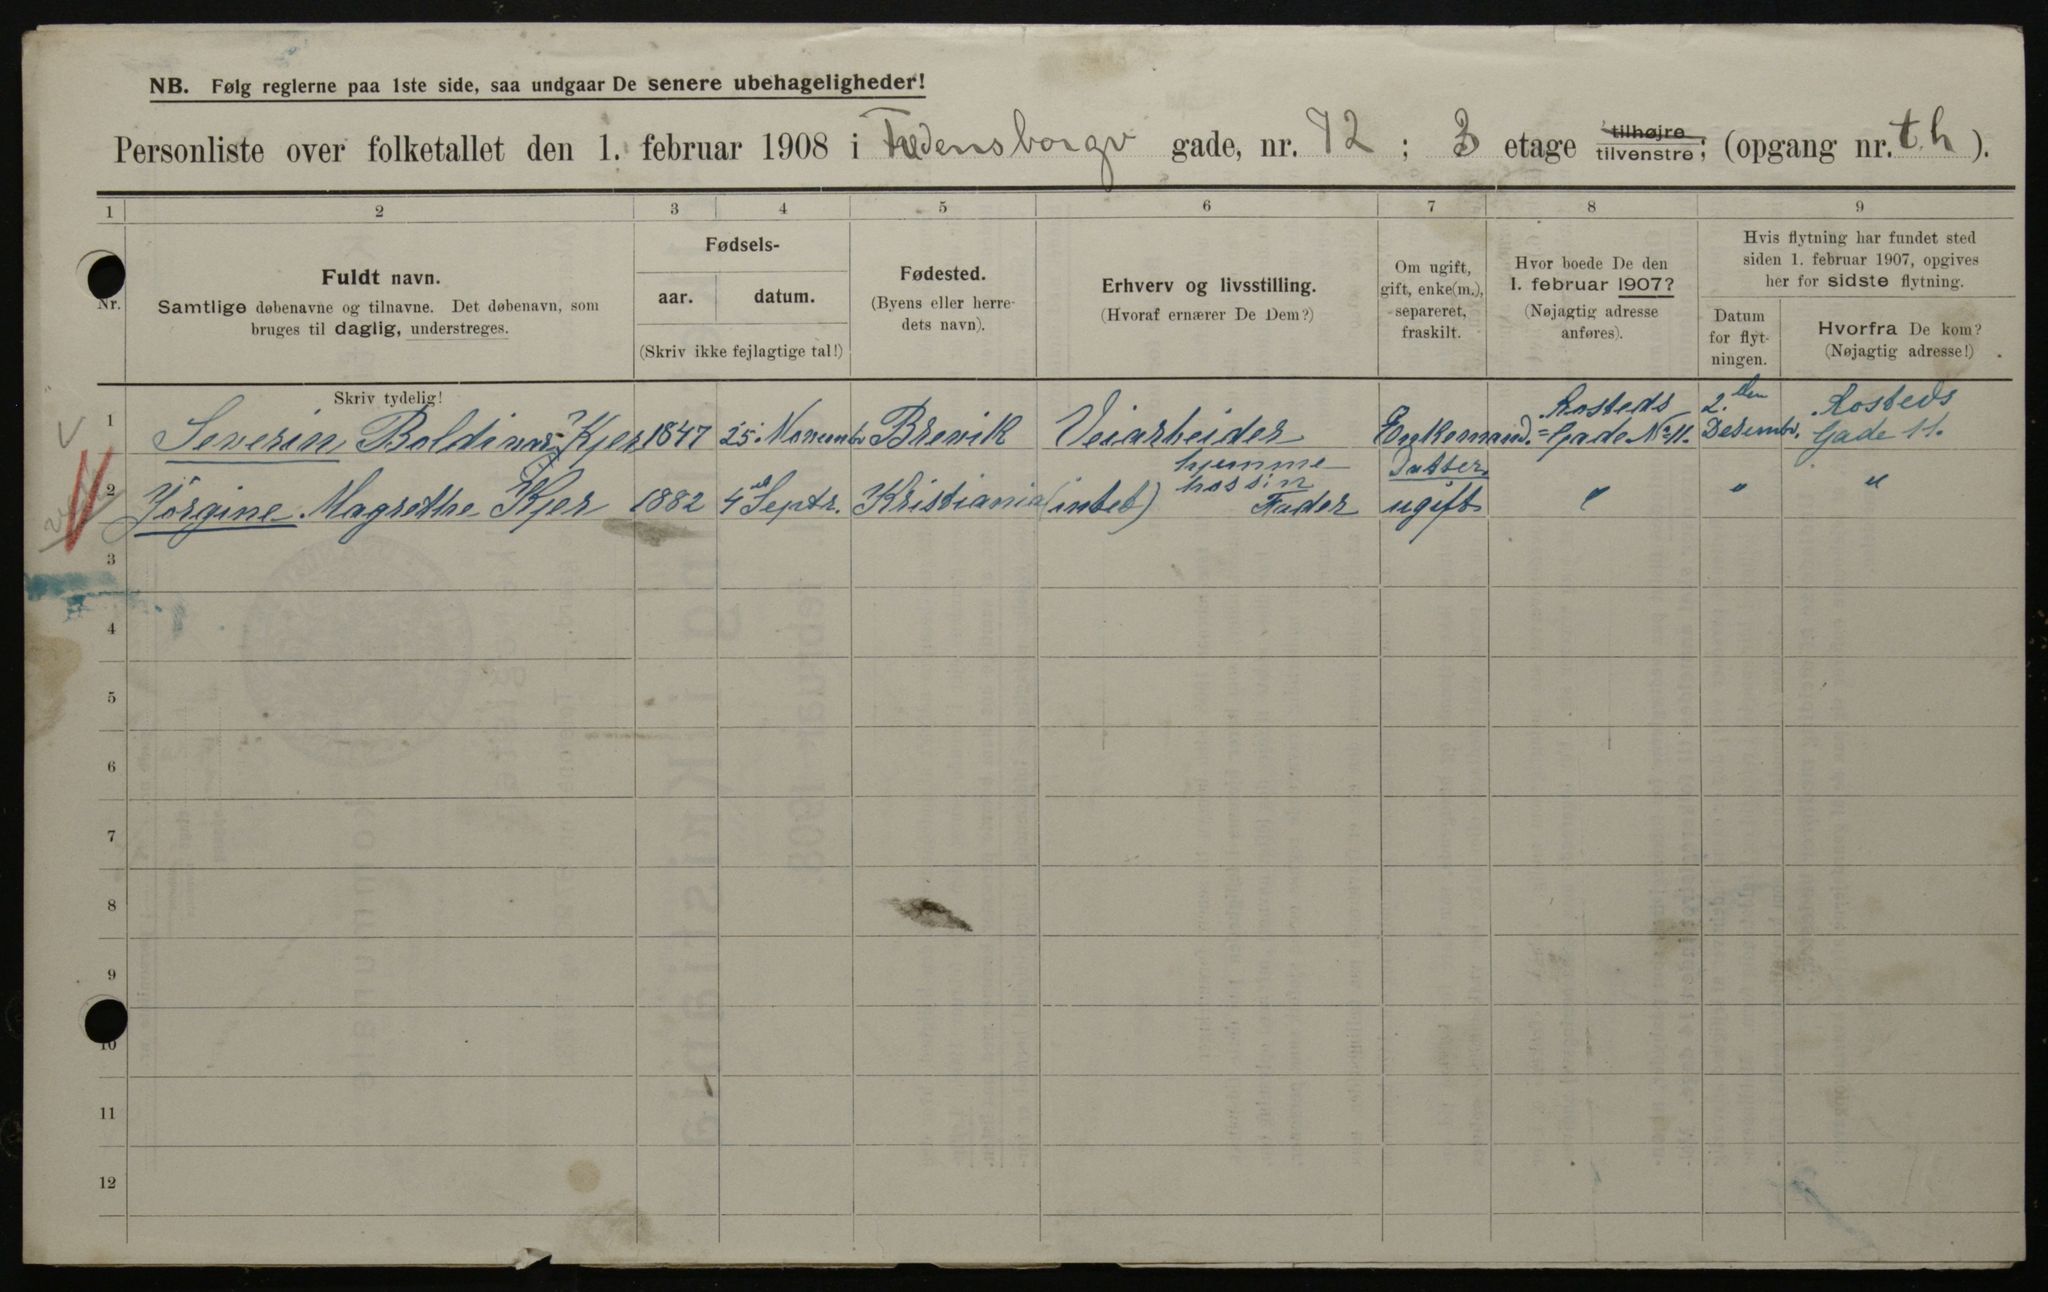 NB. Følg reglerne paa 1ste side, saa undgaar De senere ubehageligheder!
Personliste over folketallet den 1. februar 1908 i Fredensborgv gade, nr. 42 ; 3 etage tilhøjre tilvenstre; (opgang nr. t.h ).
1 2 3 4 5 6 7 8 9
Nr.
Fuldt navn.
Samtlige døbenavne og tilnavne. Det døbenavn, som
bruges til daglig, understreges.
Fødsels-
aar. datum.
(Skriv ikke fejlagtige tal!)
Fødested.
(Byens eller herre-
dets navn).
Erhverv og livsstilling.
(Hvoraf ernærer De Dem?)
Om ugift,
gift, enke(m.),
separeret,
fraskilt.
Hvor boede De den
1. februar 1907?
(Nøjagtig adresse
anføres).
Hvis flytning har fundet sted
siden 1. februar 1907, opgives
her for sidste flytning.
Datum
for flyt-
ningen.
Hvorfra De kom?
(Nøjagtig adresse!)
Skriv tydelig!
1 Severin Boldinus Kjer 1847 25 Novembr Brevik Veiarbeider Enkemand. Rosteds Gade No 11. 2den Desembr. Rosteds Gade 11.
2 Jörgine Magrethe Kjer 1882 4 Septr. Kristiania (intet) hjemme hos sin Fader Datter ugift " " "
3
4
5
6
7
8
9
10
11
12